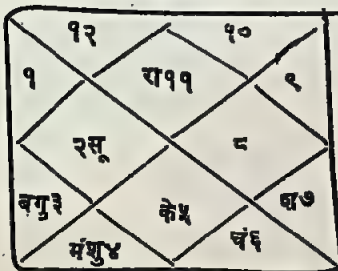 १२ १०
१ रा११ ९
२सू ८
बगु३ के५ श७
मंशु४ चं६